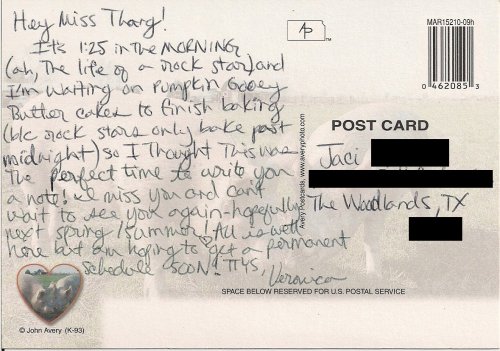 Hey Miss Thang!
It's 1:25 in the MORNING
(ah, The life of a rock star) and
I'm waiting on Pumpkin Gooey
Butter cakes to finish baking
(b/c rock stars only bake past
midnight) so I Thought This was
The perfect time to write you
a note! I miss you and can't
wait to see you again - hopefully
next spring/summer! All is well
here but am hoping to get a permanent
schedule SOON! TTYS,
Veronica
© John Avery (K-93)
Ap
TM
MAR15210-09h
0 462085 3
POST CARD
Jaci
The Woodlands, TX
Avery Postcards www.averyphoto.com
SPACE BELOW RESERVED FOR U.S. POSTAL SERVICE